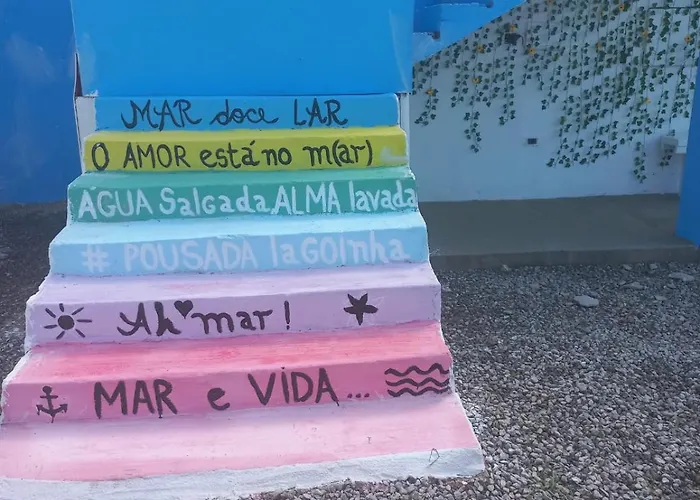 MAR doce LAR
O AMOR está no m(ar)
ÁGUA Salgada ALMA lavada
# POUSADA laGOInha
Ah♥mar!
MAR e VIDA...